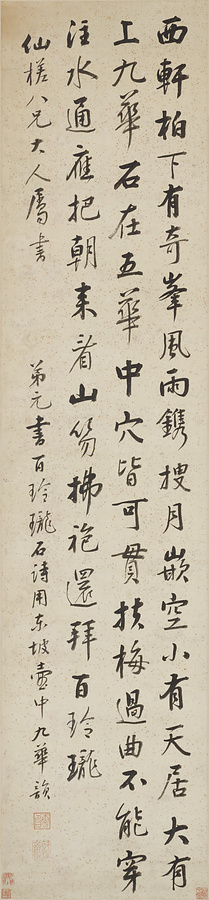 西軒柏下有奇峯風雨鐫搜月嵌空小有天居大有
上九華石在五華中穴皆可貫扶梅過曲不能穿
注水通應把朝来看山笏拂袍還拜百玲瓏
仙槎八兄大人屬書 弟元書百玲瓏石詩用東坡壺中九華韻